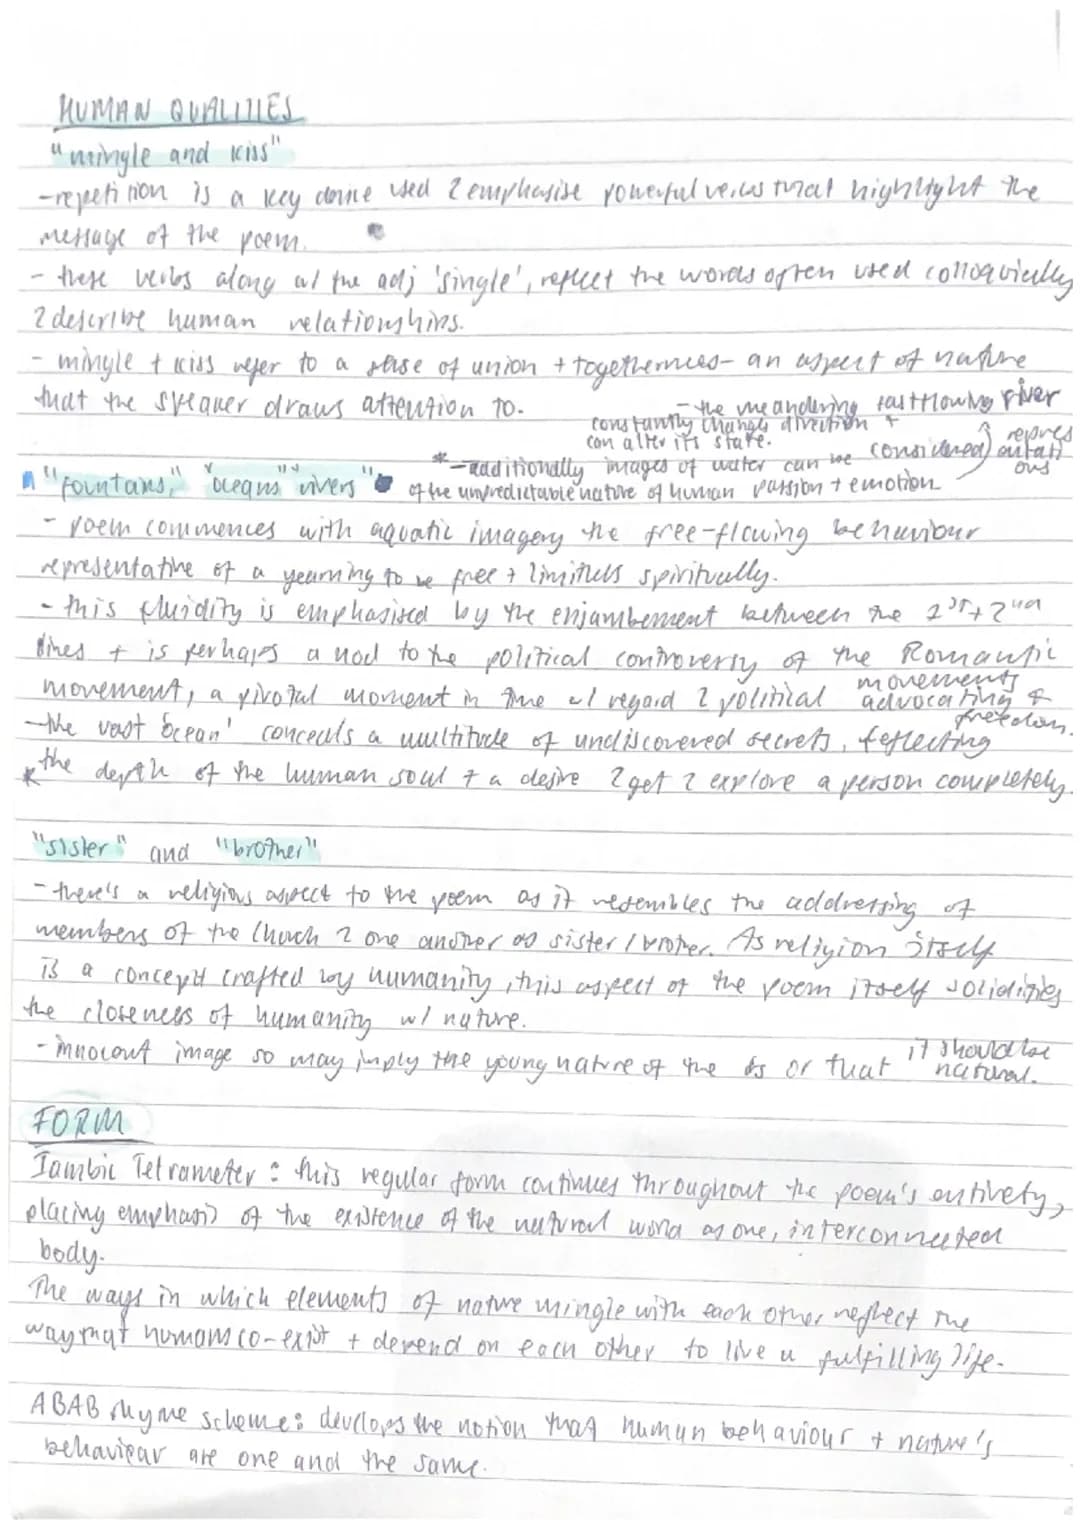 HUMAN QUALITIES
"mingle and kiss"
-repetition is a key device used 2 emphasise powerful verbs that highlight the
message of the poem.
- these verbs along w/ the adj 'single', reflect the words often used colloquially
2 describe human relationships.
- mingle + kiss refer to a sense of union + togetherness- an aspect of nature
that the speaker draws attention to.
- the meandering, fast flowing river
constantly changes direction +
can alter its state.
*-additionally images of water can be considered representations
of the unpredictable nature of human passion + emotion
"fountains," "oceans" "rivers"
- poem commences with aquatic imagery the free-flowing behaviour
representative of a yearning to be free + limitless spiritually.
- this fluidity is emphasised by the enjambement between the 1st + 2nd
lines + is perhaps a nod to the political controversy of the Romantic
movement, a pivotal moment in time w/ regard 2 political movements advocating 4 freedom.
-the vast 'ocean' conceals a multitude of undiscovered secrets, reflecting
* the depth of the human soul + a desire 2 get 2 explore a person completely.
"sister" and "brother"
- there's a religious aspect to the poem as it resembles the addressing of
members of the Church 2 one another as sister / brother. As religion itself
is a concept crafted by humanity, this aspect of the poem itself solidifies
the closeness of humanity w/ nature.
- innocent image so may imply the young nature of the or that it should be natural.
FORM
Iambic Tetrameter: this regular form continues throughout the poem's entirety,
placing emphasis of the existence of the natural world as one, interconnected
body.
The ways in which elements of nature mingle with each other reflect the
way that humans co-exist + depend on each other to live a fulfilling life.
ABAB rhyme scheme: develops the notion that human behaviour + nature's
behaviour are one and the same.